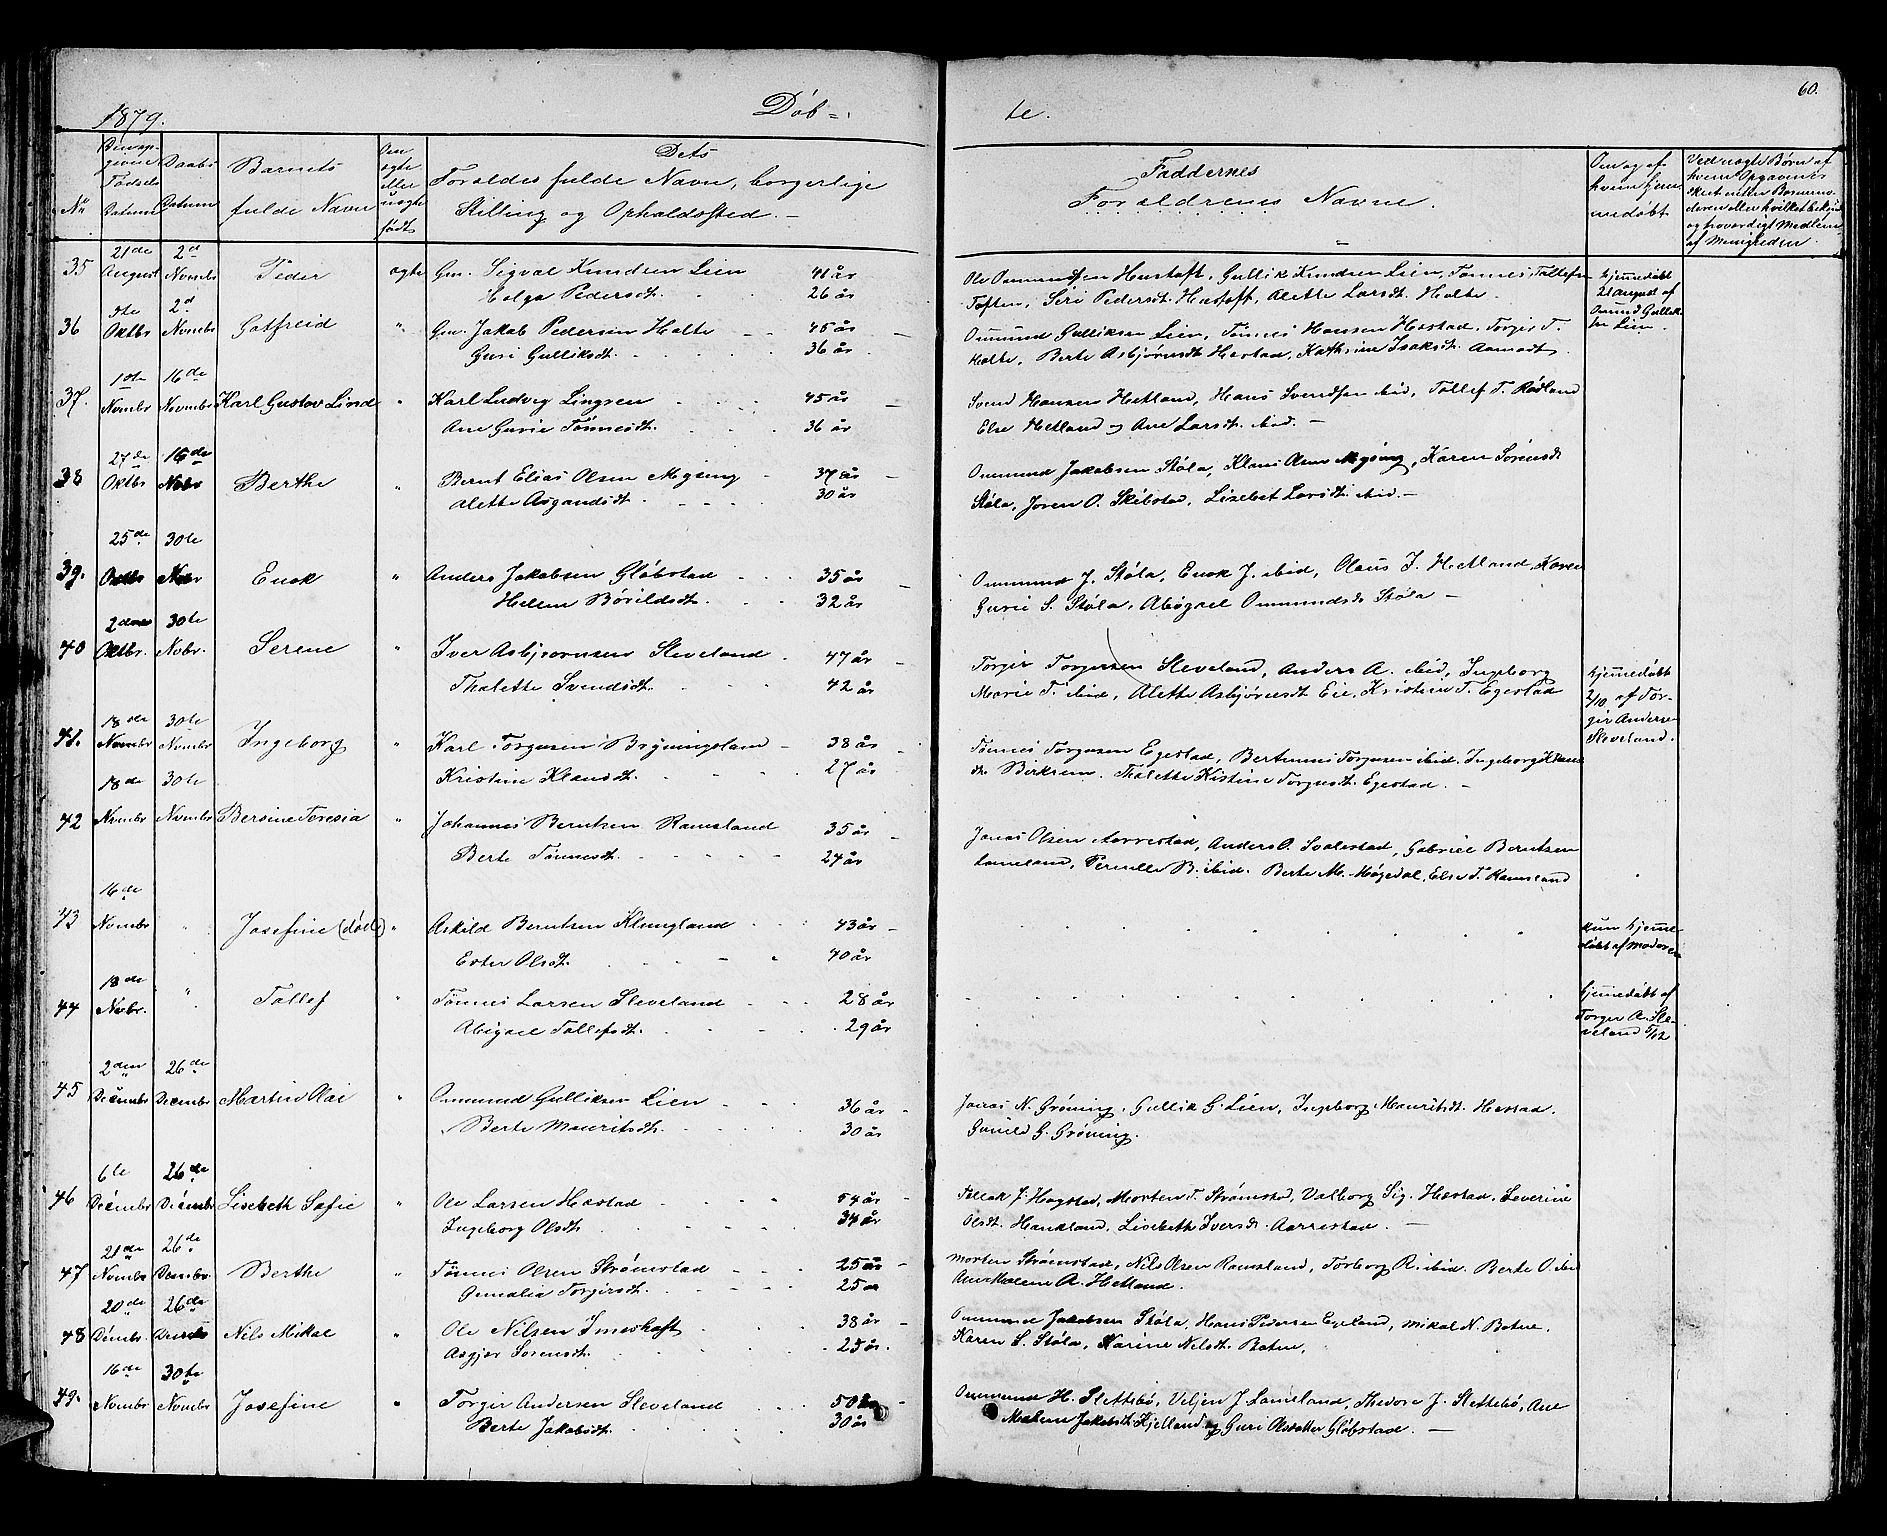 60.
1879. Døb=
te.
No
Den op-
givne
Fødsels
Datum
Daabs
Datum
Barnets
fulde Navn
Om
egte
eller
uegte
født
Dets
Forældes fulde Navn, borgerlige
Stilling og Opholdssted. —
Faddernes
Forældrenes Navne.
Om og af
hvem hjem
medøbt
Ved uegte Børn af
hvem Opgaven er
skeet enten Barnemo
deren eller hvilket bekj
og troværdigt Medlem
af Menigheden.
35 21de August 2d Novembr Peder egte Gm. Sigval Knudsen Lien 41 år
Helga Pedersdt. 26 år
Ole Ommundsen Hustoft, Gullik Knudsen Lien, Tønnes Tollefsen
Toften, Seri Pedersdt. Hustoft, Alette Larsdt. Holte.
hjemmedøbt
21 august af
Omund Gullik
sen Lien.
36 9de Oktbr 2d Novembr Gotfreid " Gm. Jakob Pedersen Holte 45 år
Guri Gulliksdt. 36 år
Ommund Gulliksen Lien, Tønnes Hansen Hæstad, Torger T.
Holte, Berte Asbjørnsdt Hestad, Kathrine Isaksdt. Aamodt.
37. 1ste Novmbr 16de Novembr Karl Gustov Lind " Karl Ludvig Lingren 45 år
Ane Gurie Tønnesdt. 36 år
Svend Hansen Hetland, Hans Svendsen ibid, Tollef T. Rødland
Else Hetland og Ane Larsdt. ibid. —
38 27de Oktbr 16de Nobr Berthe " Bernt Elias Olsen Mysing 37 år
Alette Asgaudsdt. 30 år
Ommund Jakobsen Støla, Klaus Olsen Mysing, Karen Sørensdt
Støla, Joren O. Skibstad, Lisebet Larsdt. ibid. —
39. 25de Oktbr 30te Nobr Enok " Anders Jakobsen Gløbstad 35 år
Hellen Børildsdt. 32 år
Ommund J. Støla, Enok J. ibid, Olaus J. Hetland, Karen
Gurie S. Støla, Abigael Ommundsdt Støla —
40 2den Oktbr. 30te Nvbr. Serene " Iver Asbjørnsen Sleveland 47 år
Thalette Svendsdt. 42 år
Torger Torgersen Sleveland, Anders A. ibid, Ingeborg
Marie T. ibid, Alette Asbjørnsdt Eie, Kristine T. Egestad
hjemmedøbt
2/10 af Tor-
ger Anderse
Sleveland.
41. 18de Novmbr 30te Novmbr Ingeborg " Karl Torgersen Bryningsland 38 år
Kristine Klausdt. 27 år
Tønnes Torgersen Egestad, Bertinus Torgersen ibid. Ingeborg Klaus
dt. Birkrem. Thalette Kistine Torgersdt. Egestad. —
42 18de Novmbr 30te Novmbr Bersine Teresia " Johannes Berntsen Ramsland 35 år
Berte Tønnesdt. 24 år
Jonas Olsen Aarrestad, Anders O. Svalestad, Gabriel Berntsen
Lomeland, Pernille B. ibid. Berte M. Møgedal, Else T. Ramsland
43 16de Novmbr " Josefine (død) " Askild Berntsen Klungland 43 år
Ester Olsdt. 40 år
kun hjemme-
døbt af moderen
44 18de Nvbr. " Tollef " Tønnes Larsen Sleveland 28 år
Abigael Tollefsdt. 29 år
hjemmedøbt af
Torger A. Sle-
veland 5/12
45 2den Decembr 26de Decembr Martin Olai " Ommund Gulliksen Lien 36 år
Berte Mauritsdt. 30 år
Jonas N. Grøning, Gullik G. Lien, Ingeborg Mauritsdt. Hestad.
Gunild G. Grøning.
46 6te Decembr 26de Decembr Lisebeth Sofie " Ole Larsen Hæstad 54 år
Ingeborg Olsdt. 34 år
Tollak J. Hogstad, Morten T. Strømstad, Valborg Sig. Hæstad. Severine
Olsdt. Haukland, Lisebeth Iversdt. Aarrestad. —
47 21de Novmbr 26de Dembr. Berthe " Tønnes Olsen Strømstad 25 år
Ommalia Torgersdt. 25 år
Morten Strømstad, Nils Olsen Ramsland, Torborg R. ibid. Berte O. ibid
Ane Malene A. Hetland.
48 20de Dembr. 26de Nils Mikal " Ole Nilsen Imeshoft 38 år
Asgjer Sørensdt. 25 år.
Ommund Jakobsen Støla, Hans Pedersen Egeland, Mikal N. Botne.
Karen S. Støla, Karine Nilsdt. Botne,
49. 16de Novmbr 30te Novmbr Josefine " Torger Andersen Sleveland 50 år
Berte Jakobsdt. 30 år
Ommund H. Slettebø, Veljen J. Lomeland, Thedore J. Slettebø, Ane
Malene Jakobsdt. Kjelland og Guri Gløbstad. —